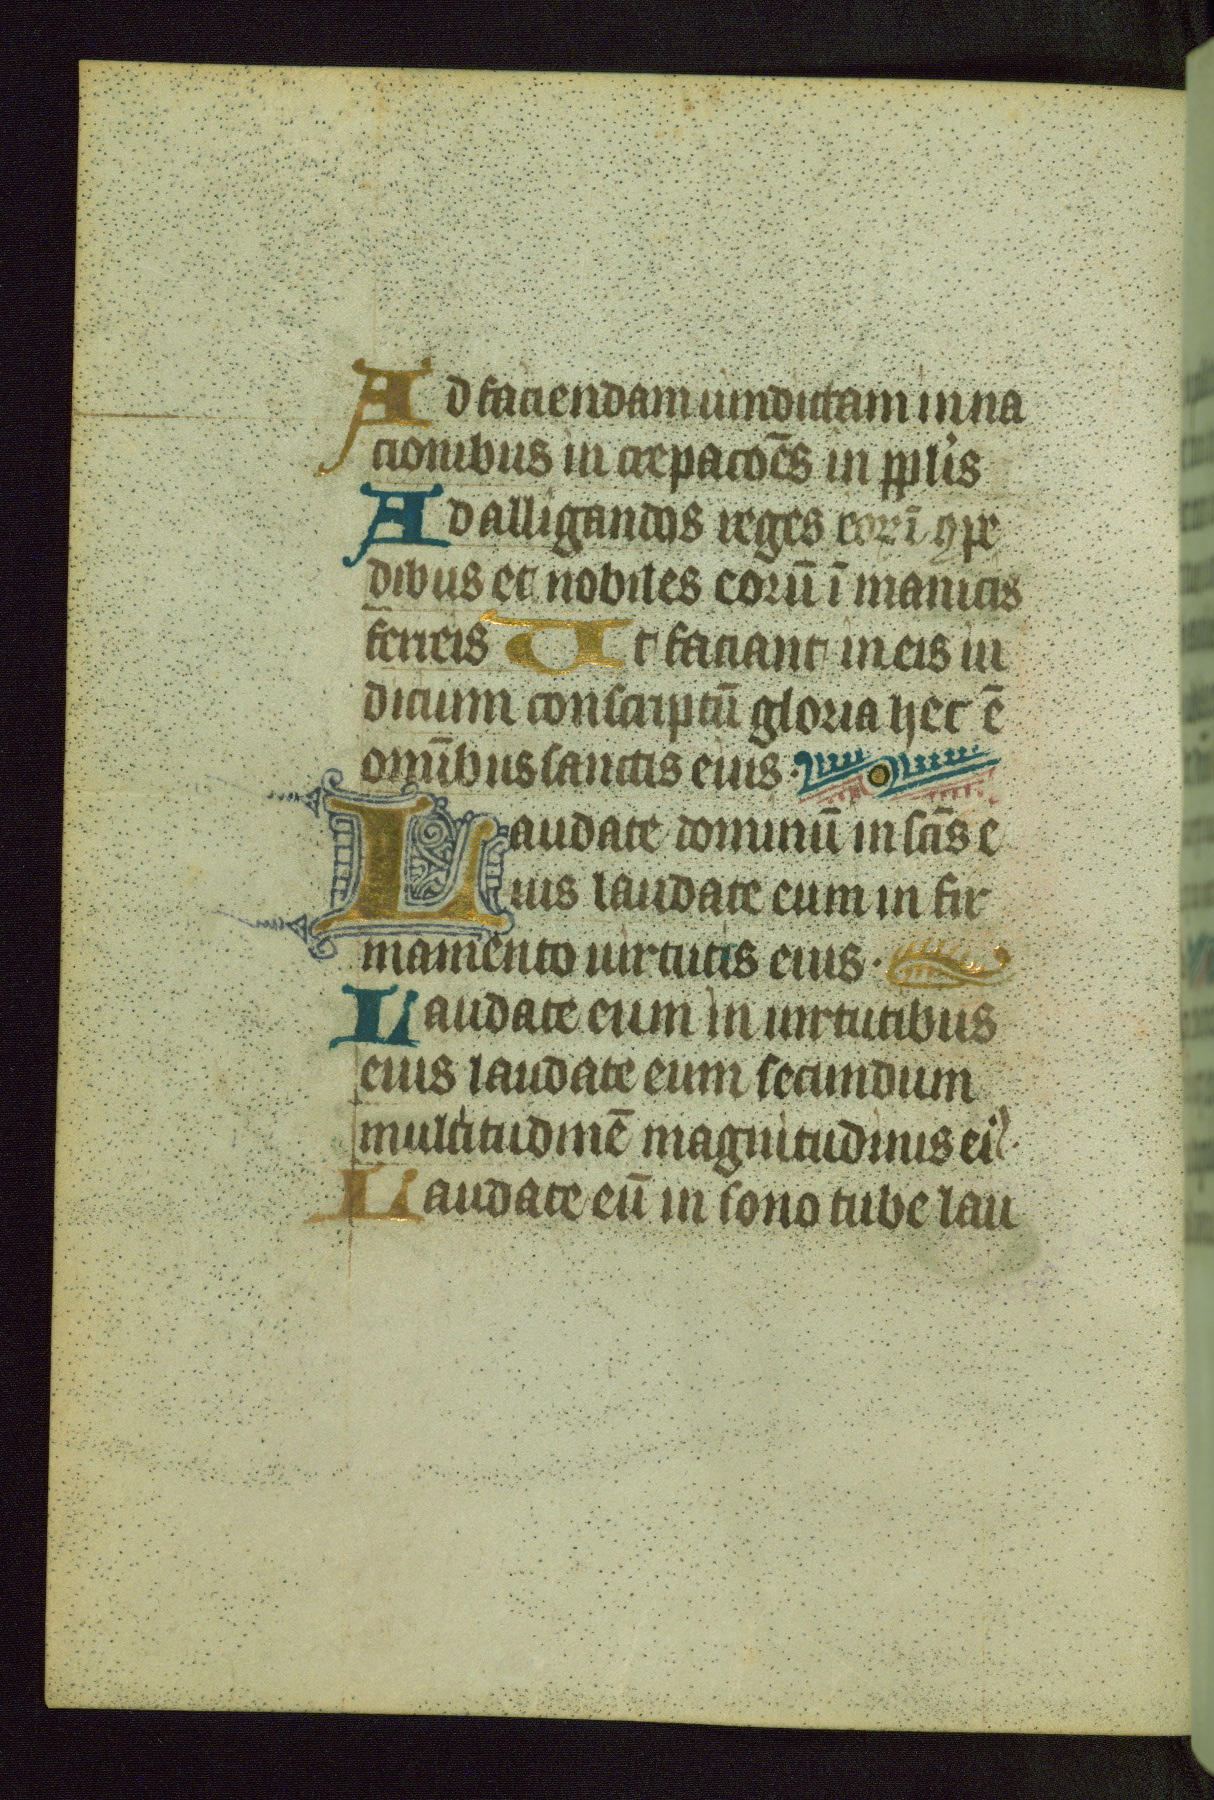 Ad faciendam uindictam in na
cionibus in crepacōes in pplis
Ad alligandos reges eorū
dibus et nobiles eorū ī manicis
ferreis Ut faciant in eis iu
dicium conscriptū gloria hec ē
omībus sanctis eius
Laudate dominū in scīs e
iuis laudate eum in fir
mamento uirtutis eius ·
Laudate eum in uirtutibus
eius laudate eum secundum
multitudinē magnitudinis ei᾿
Laudate eū in sono tube lau